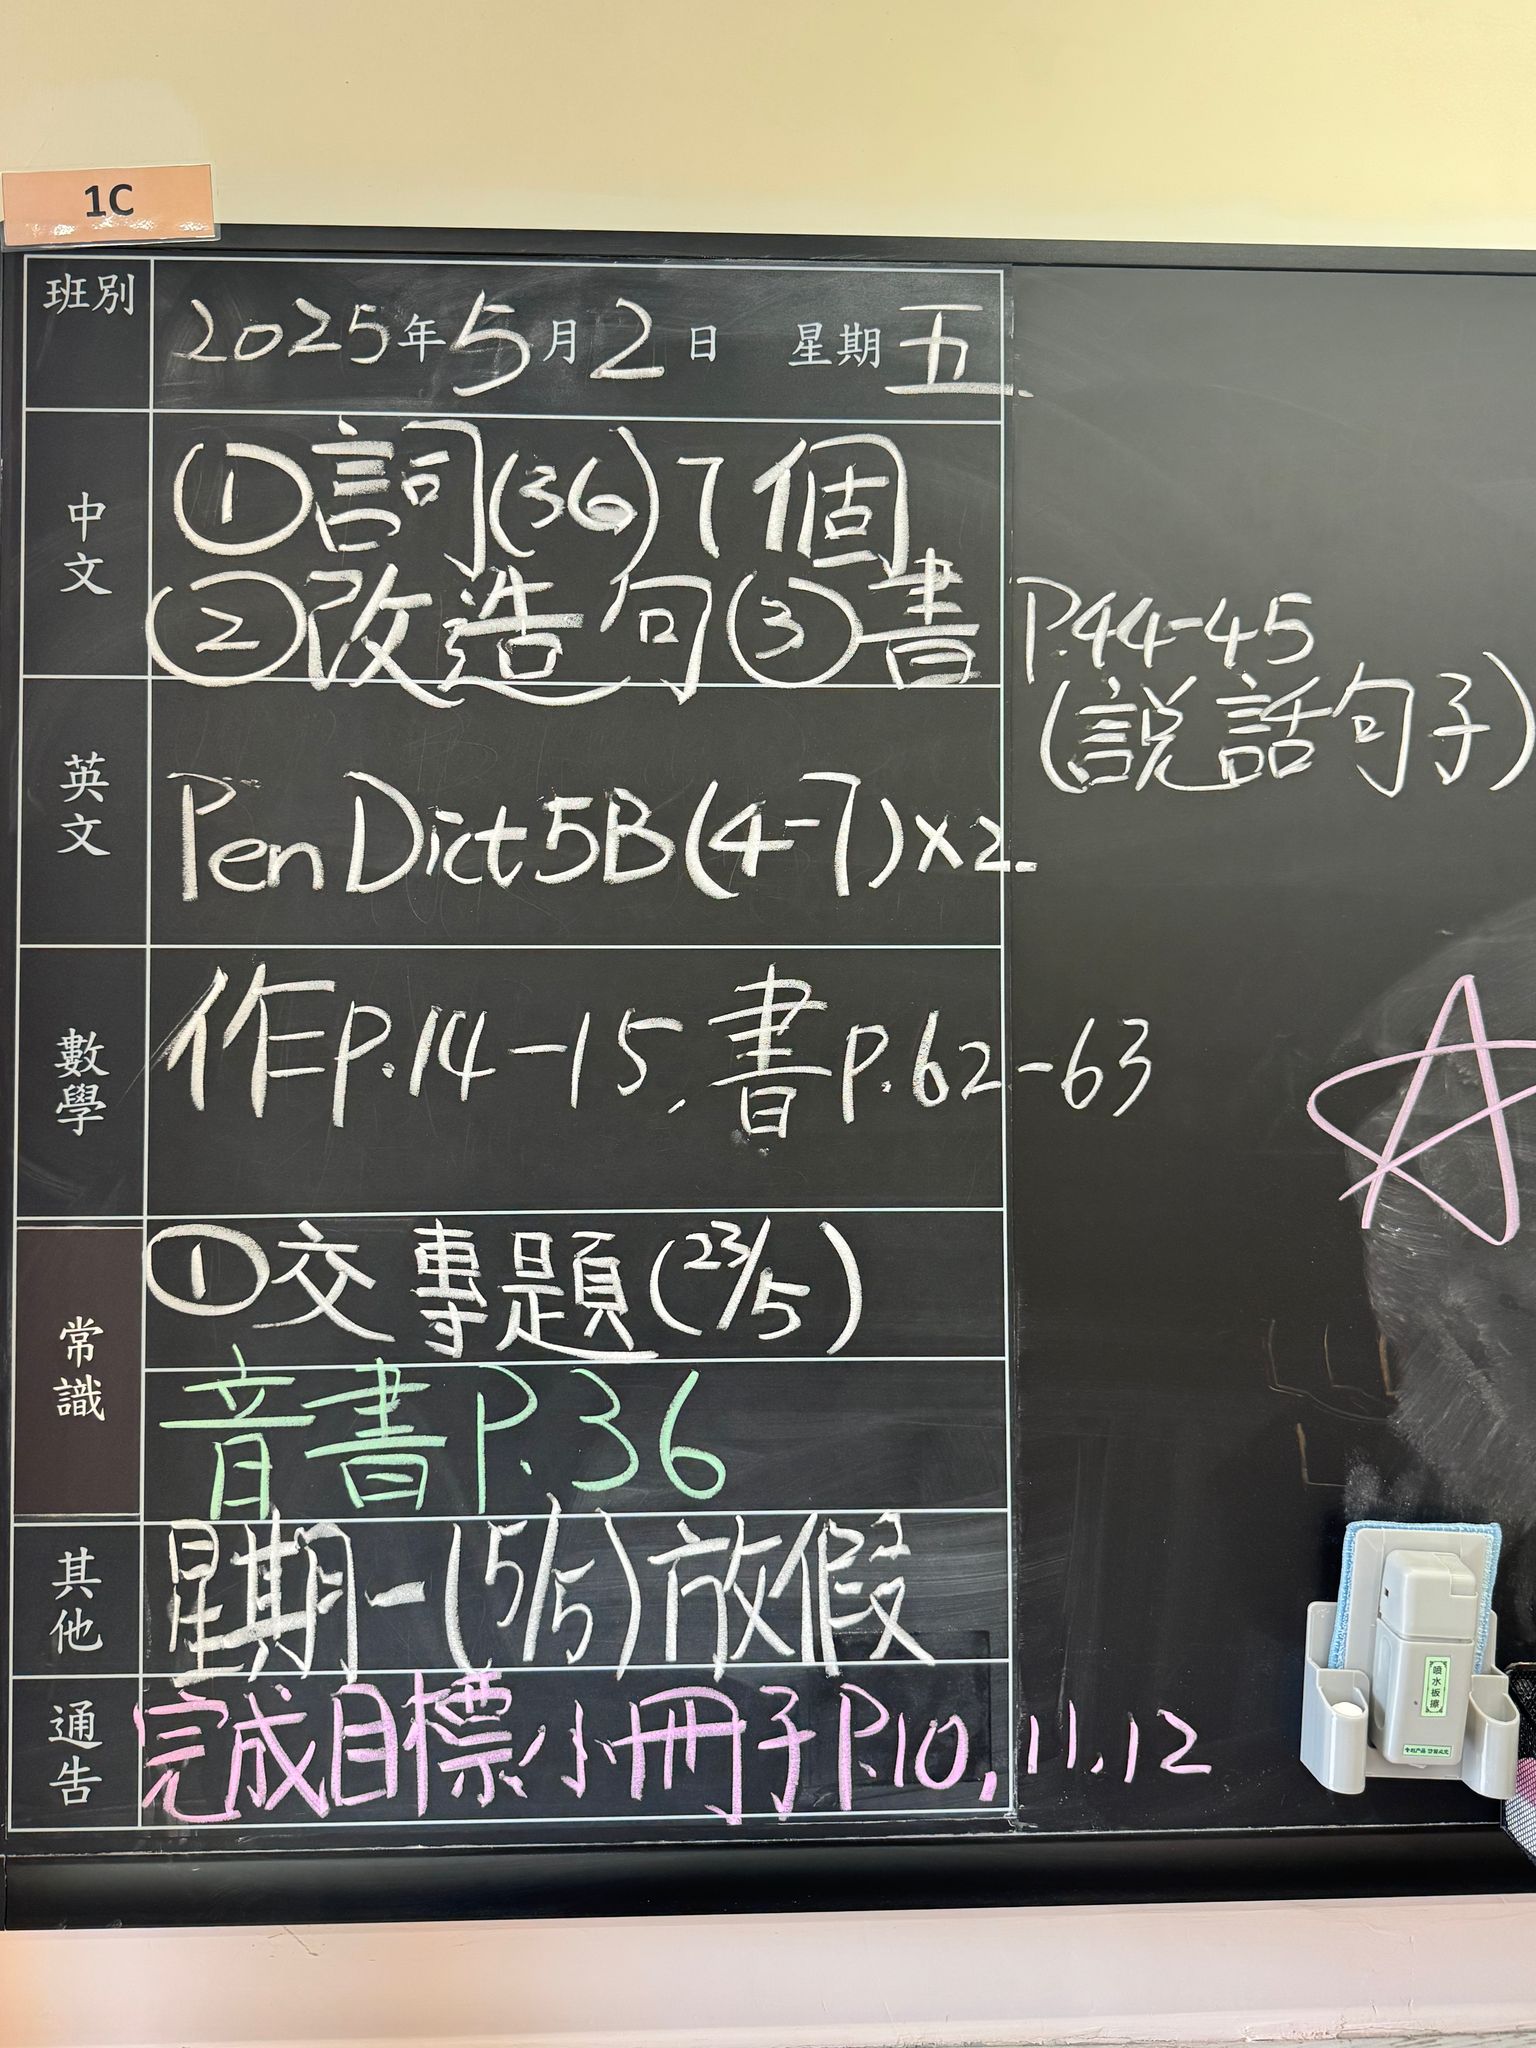 1C
班別 2025年5月2日 星期五
中文 ①詞(36)7個
②改造句③書 P.44-45
(説話句子)
英文 Pen Dict 5B (4-7)×2.
數學 作P.14-15, 書P.62-63
常識 ①交專題(23/5)
音書P.36
其他 星期一(5/5)放假
通告 完成目標小冊子P.10,11,12
噴水板擦